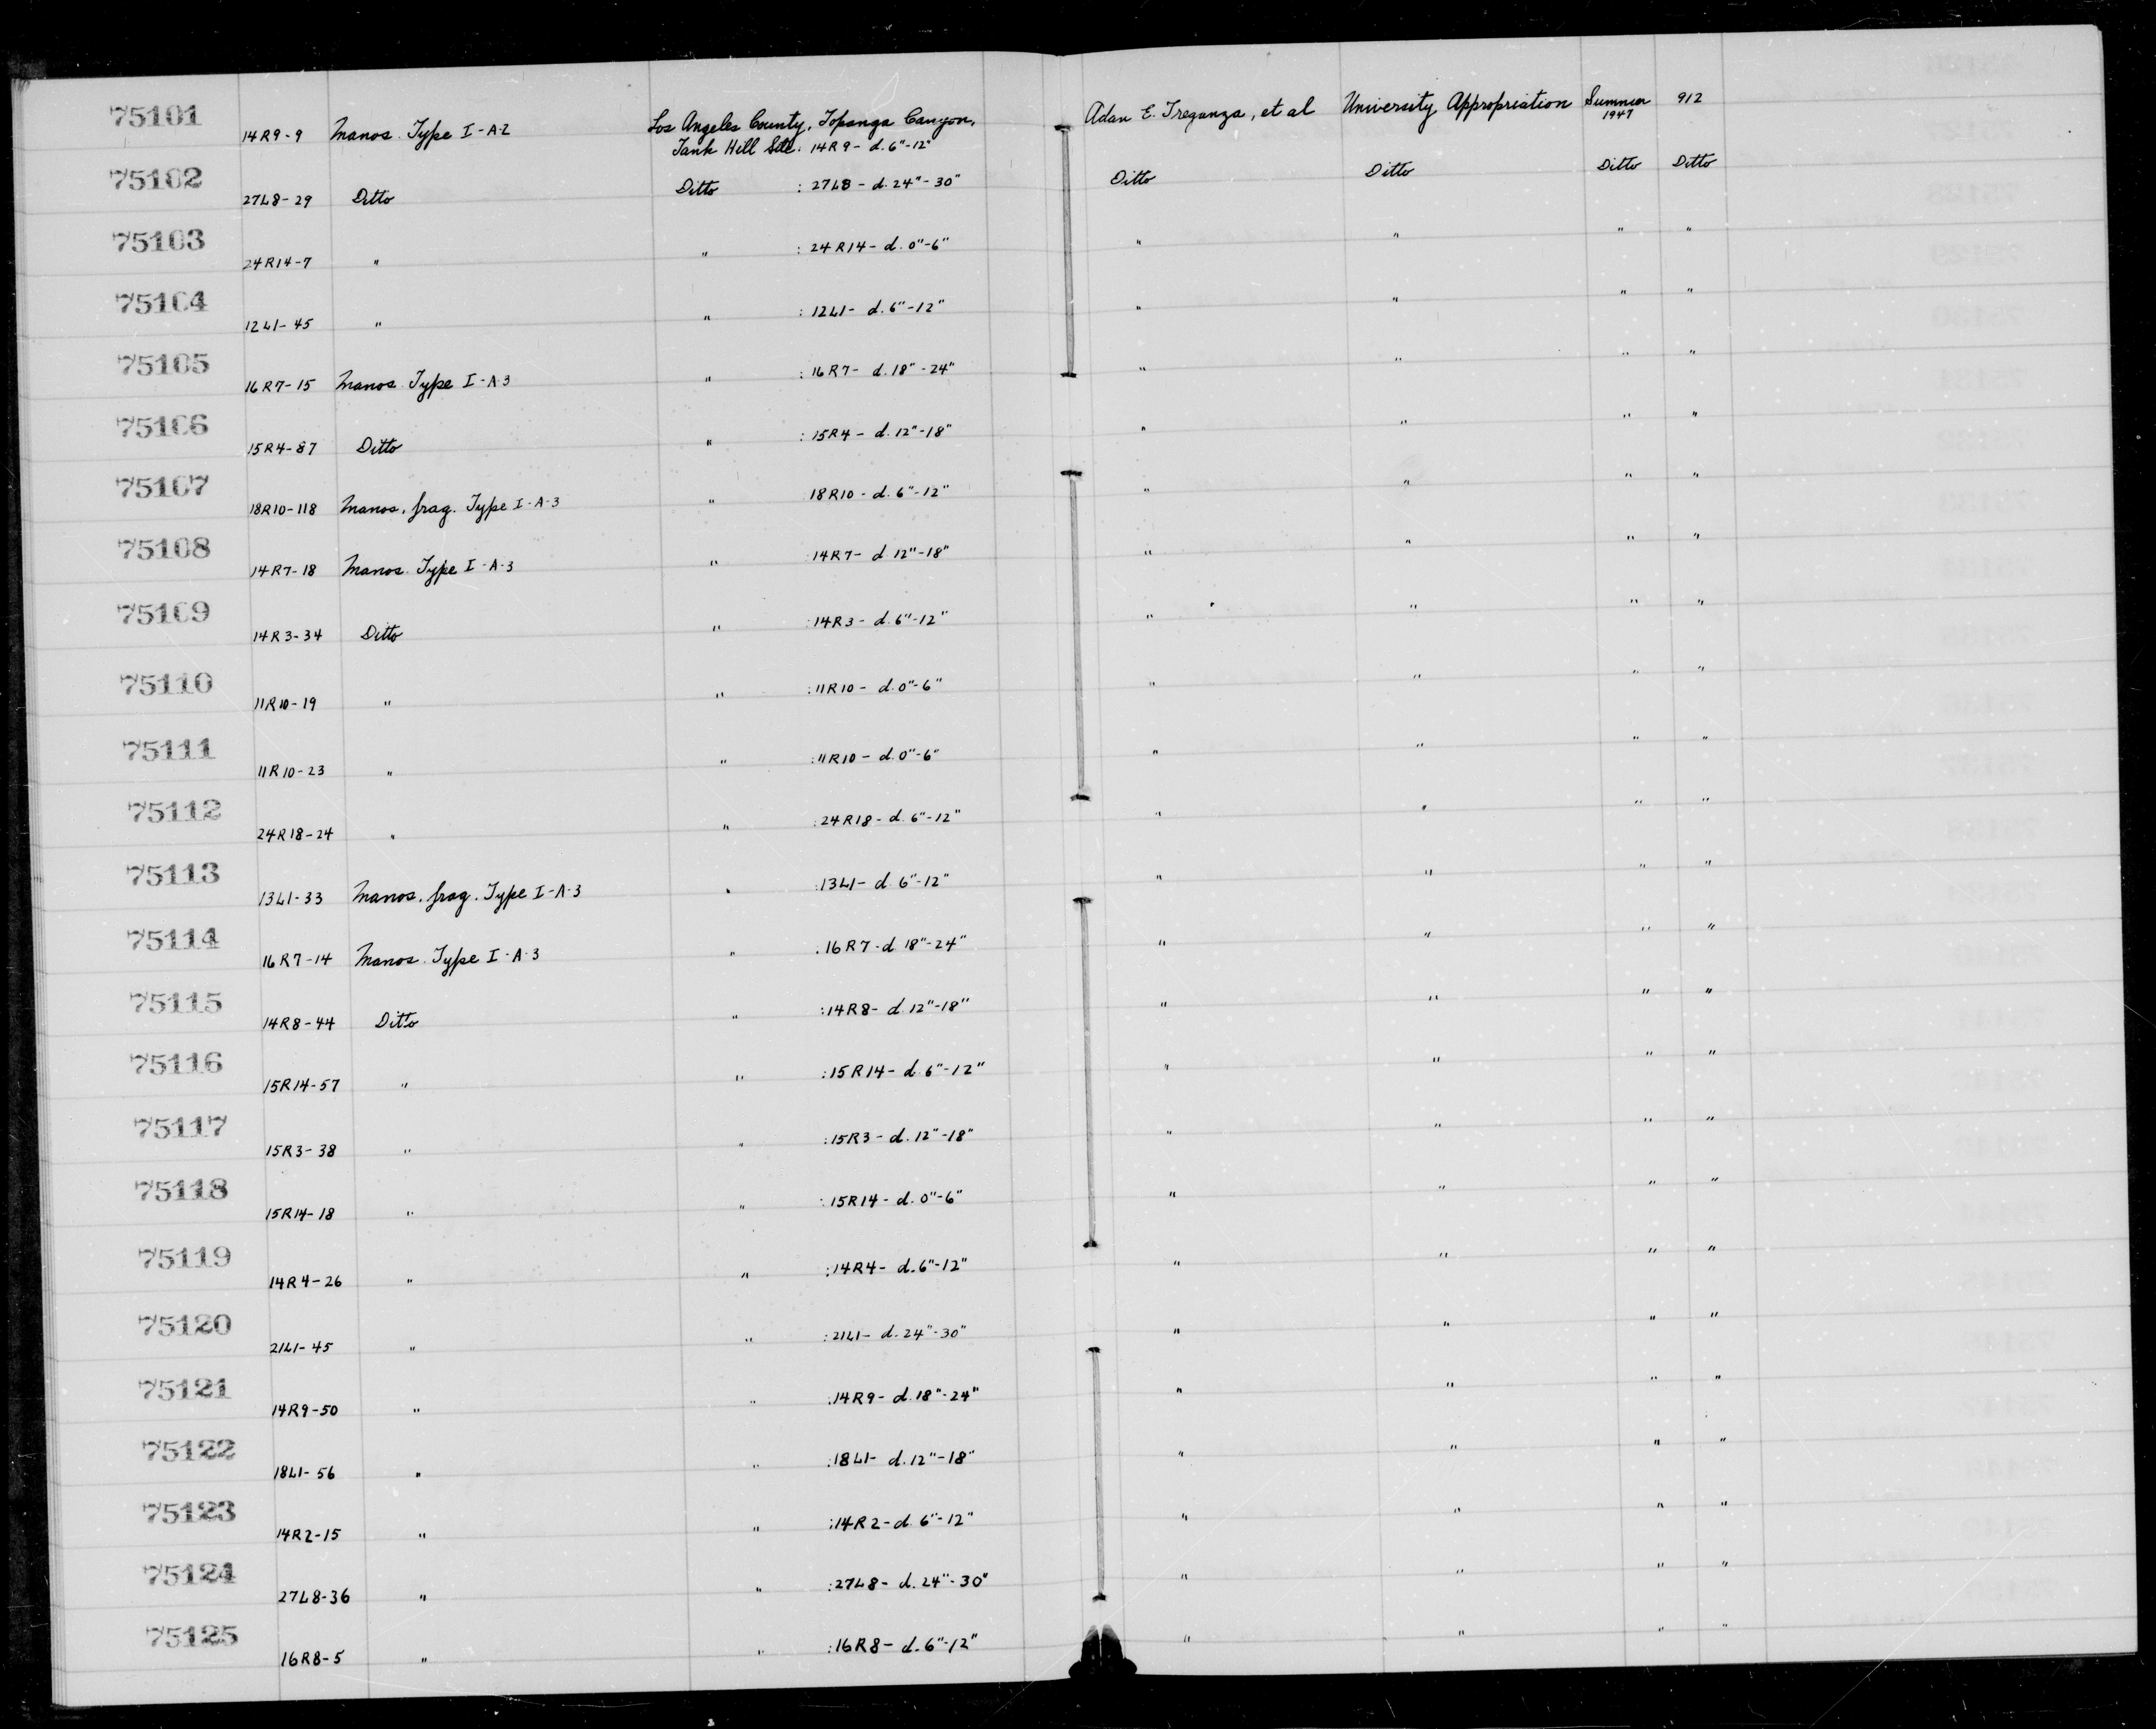 75101 14R9-9 Manos. Type I-A-2 Los Angeles County, Topanga Canyon, Adan E. Treganza, et al University Appropriation Summer 1947 912
Tank Hill Site: 14R9- d. 6"-12"
75102 27L8-29 Ditto Ditto : 27L8- d. 24"-30" Ditto Ditto Ditto Ditto
75103 24R14-7 " " : 24R14- d. 0"-6" " " " "
75104 12L1-45 " " : 12L1- d. 6"-12" " " " "
75105 16R7-15 Manos. Type I-A-3 " : 16R7- d. 18"-24" " " " "
75106 15R4-87 Ditto " : 15R4- d. 12"-18" " " " "
75107 18R10-118 Manos, frag. Type I-A-3 " 18R10- d. 6"-12" " " " "
75108 14R7-18 Manos. Type I-A-3 " : 14R7- d 12"-18" " " " "
75109 14R3-34 Ditto " : 14R3- d. 6"-12" " " " "
75110 11R10-19 " " : 11R10- d. 0"-6" " " " "
75111 11R10-23 " " : 11R10- d. 0"-6" " " " "
75112 24R18-24 " " : 24R18- d. 6"-12" " " " "
75113 13L1-33 Manos, frag. Type I-A-3 " : 13L1- d. 6"-12" " " " "
75114 16R7-14 Manos. Type I-A-3 " : 16R7- d 18"-24" " " " "
75115 14R8-44 Ditto " : 14R8- d. 12"-18" " " " "
75116 15R14-57 " " : 15R14- d. 6"-12" " " " "
75117 15R3-38 " " : 15R3- d. 12"-18" " " " "
75118 15R14-18 " " : 15R14- d. 0"-6" " " " "
75119 14R4-26 " " : 14R4- d. 6"-12" " " " "
75120 21L1-45 " " : 21L1- d. 24"-30" " " " "
75121 14R9-50 " " : 14R9- d. 18"-24" " " " "
75122 18L1-56 " " : 18L1- d. 12"-18" " " " "
75123 14R2-15 " " : 14R2- d. 6"-12" " " " "
75124 27L8-36 " " : 27L8- d. 24"-30" " " " "
75125 16R8-5 " " : 16R8- d. 6"-12" " " " "